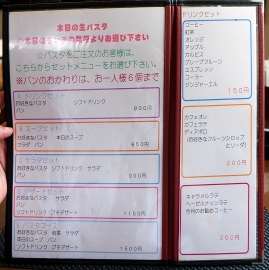 本日の生パスタ
よりお選び下さい
☆パスタをご注文のお客様は、
こちらからセットメニューをお選び下さい。
※パンのおかわりは、お一人様6個まで
A ドリンクセット
お好きなパスタ ソフトドリンク
800円
B スープセット
お好きなパスタ 本日のスープ
サラダ パン
850円
C サラダセット
お好きなパスタ ソフトドリンク サラダ
パン
900円
デザートセット
お好きなパスタ サラダ パン
ソフトドリンク プチデザート
1150円
お好きなパスタ 前菜 サラダ
本日のスープ パン
ソフトドリンク プチデザート
1500円
ドリンクセット
コーヒー
紅茶
オレンジ
アップル
カルピス
グレープフルーツ
エスプレッソ
コーラ
ジンジャーエール
150円
カフェオレ
カフェラテ
ディアボロ
(お好きなフルーツシロップ
とソーダ)
200円
キャラメルラテ
ヘーゼルナッツラテ
今月のお勧めコーヒー
250円